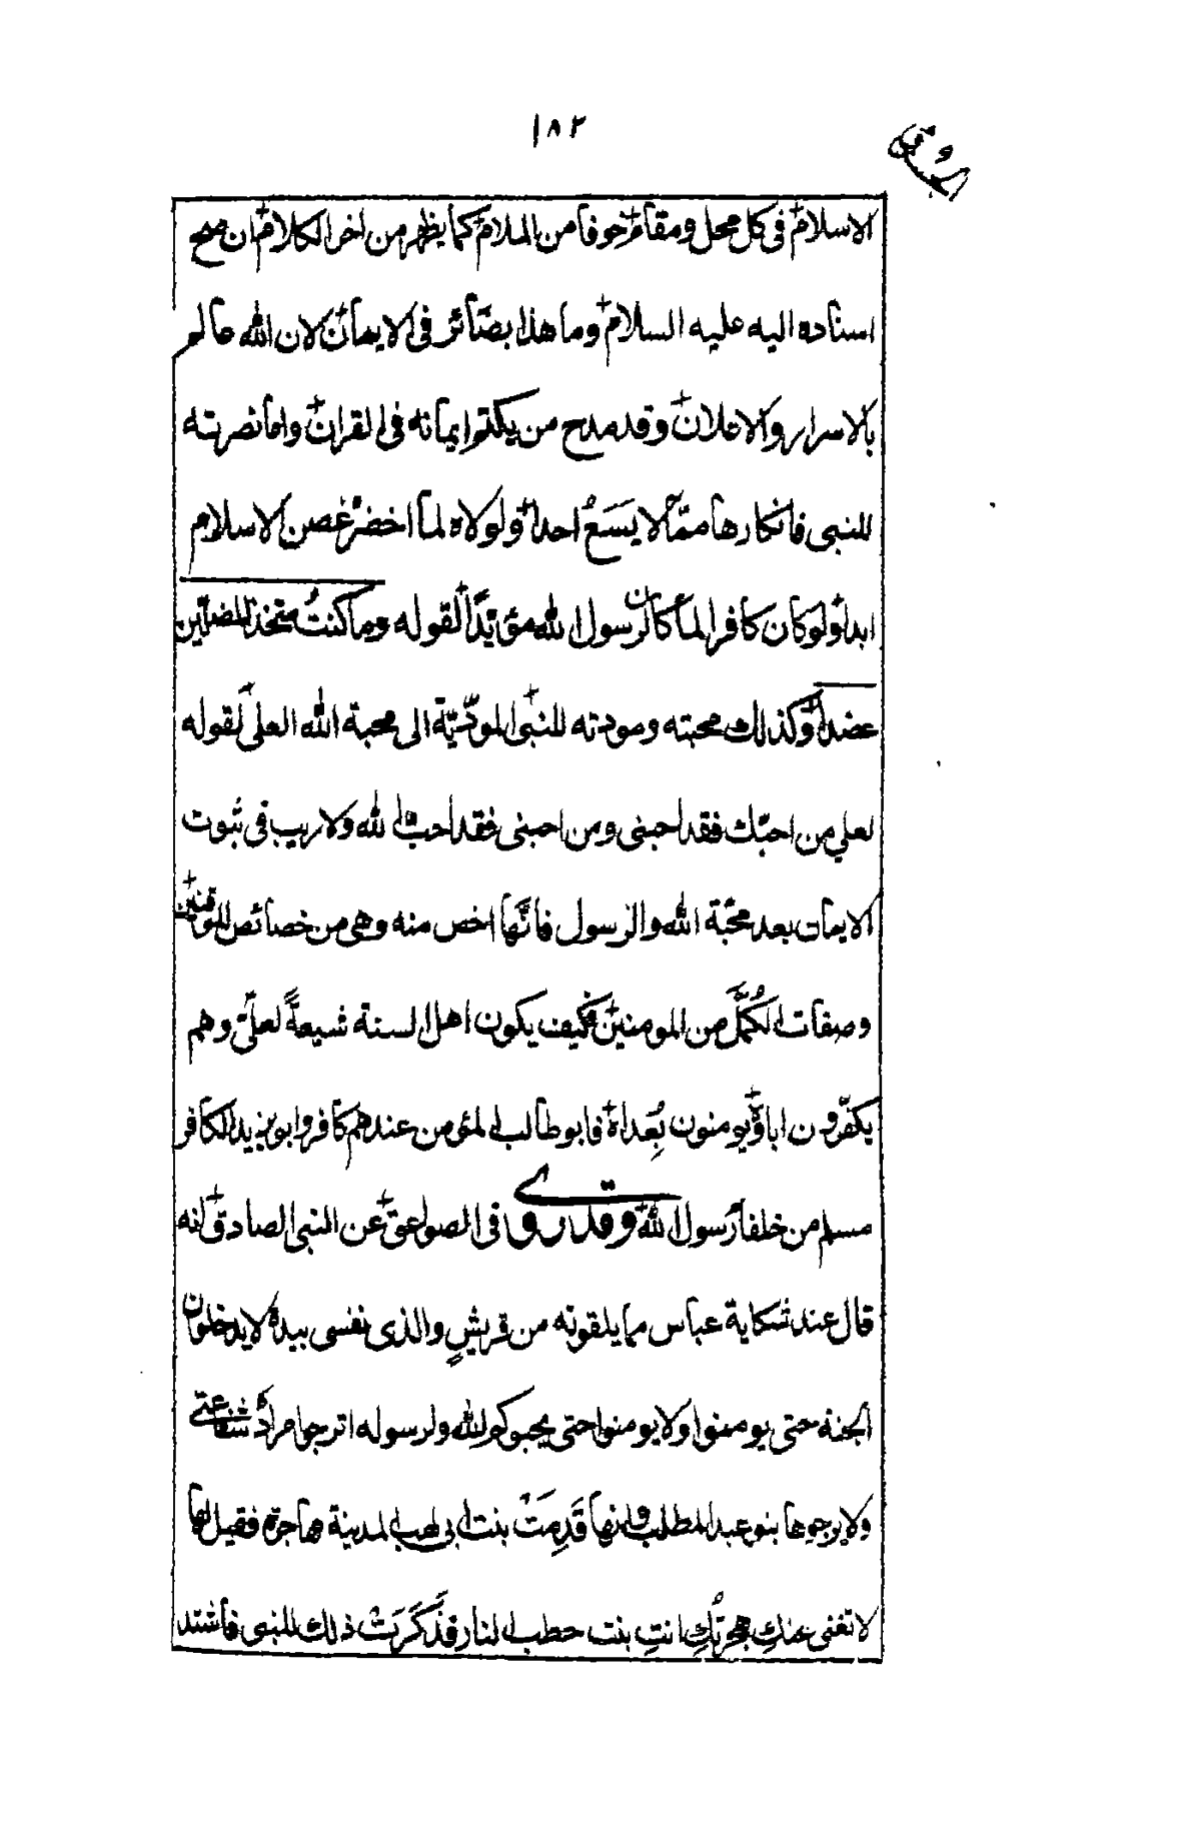 ١٨٢
الاسلام في كل محل ومقام خوفا من الملام كما يظهر من اخر الكلام ان صح
اسناده اليه عليه السلام وما هذا بضائر في الايمان لان الله عالم
بالاسرار والاعلان وقد مدح من يكتم ايمانه في القران واما نصرته
للنبي فانكارها ممّا لا يسَعُ احدا ولولاه لما اخضرّ غصن الاسلام
ابدا ولو كان كافرا لما كان رسول الله مؤيّدا لقوله وما كنتُ متخذ المضلّين
عضدا وكذلك محبته ومودته للنبي المودّيّة الى محبة الله العلي لقوله
لعلي من احبّك فقد احبني ومن احبني فقد احبّ الله ولا ريب في ثبوت
الايمان بعد محبّة الله والرسول فانّها اخص منه وهي من خصائص الموقنين
وصفات الكُمَّل من المومنين فكيف يكون اهل السنة شيعةً لعليّ وهم
يكفّرون اباه ويومنون بِعُداه فابو طالب المؤمن عندهم كافر وابو يزيد الكافر
مسلم من خلفاء رسول الله وقد روى في الصواعق عن النبي الصادق انه
قال عند شكاية عباس مما يلقونه من قريشٍ والذي نفسي بيده لا يدخلون
الجنة حتى يومنوا ولا يومنوا حتى يحبوكم لله ولرسوله اترجوا مرادُ شفاعتي
ولا يرجوها بنو عبد المطلب وانها قَدِمَتْ بنت ابي لهب المدينة مهاجرة فقيل لها
لا تغني عنكِ هجرتُكِ انتِ بنت حطب النار فذَكَرَتْ ذلك للنبي فاشتد